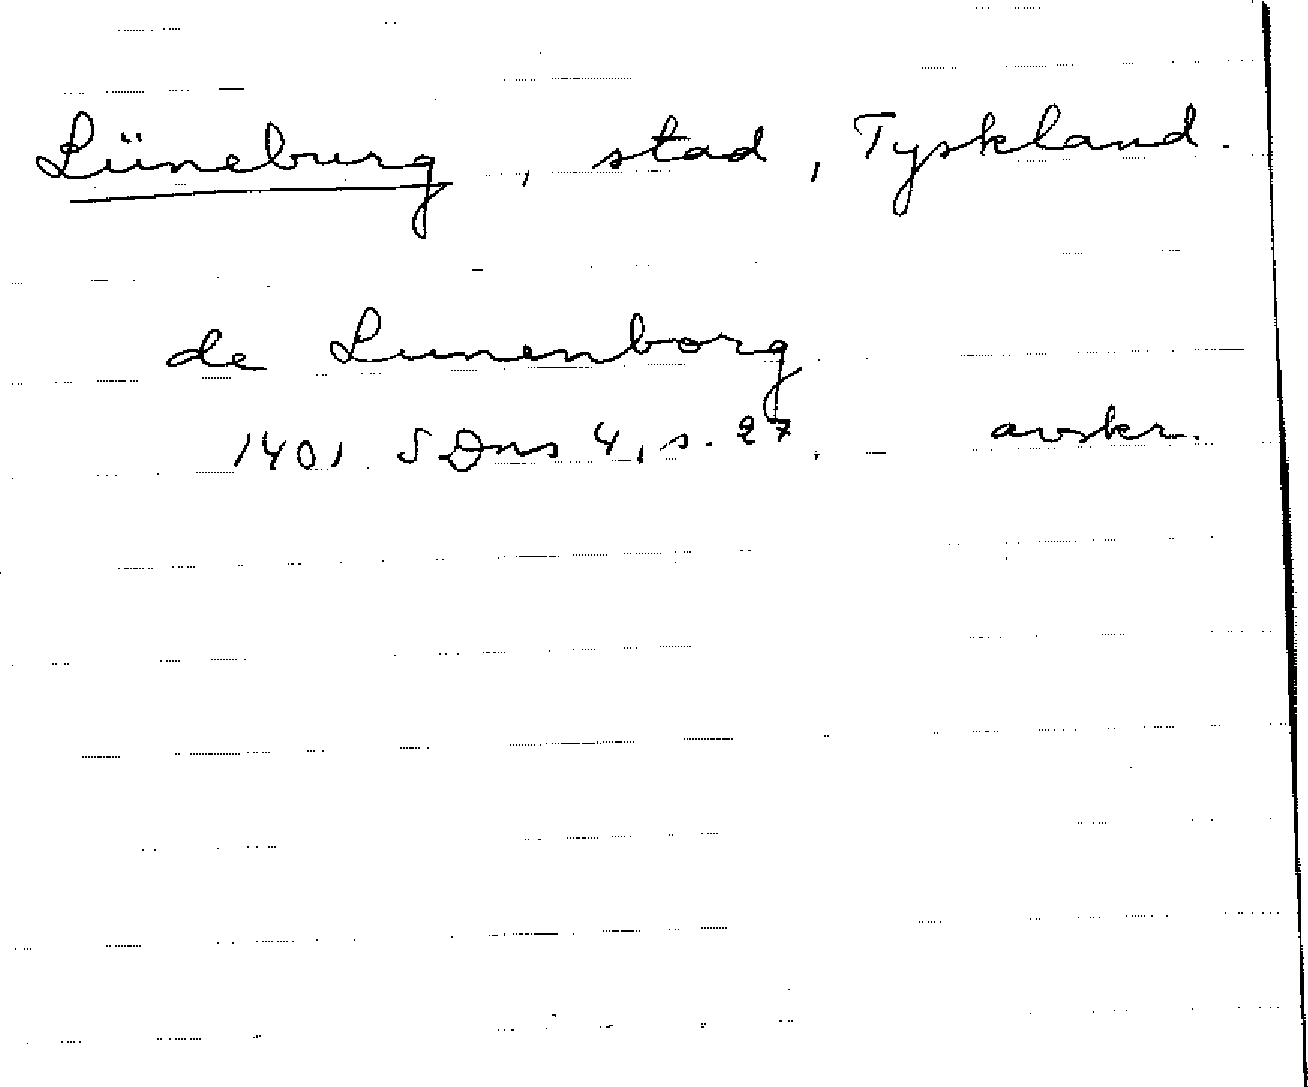 Lüneburg, stad, Tyskland.
de Lunenborg
1401 SDns 4, s. 27. avskr.